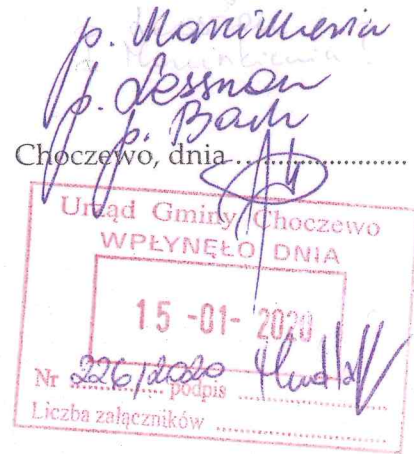 p. Marcinkiewia
p. Lessnau
p. Bach
Choczewo, dnia ........................
Urząd Gminy Choczewo
WPŁYNĘŁO DNIA
15 -01- 2020
Nr 226/2020 podpis
Liczba załączników ........................